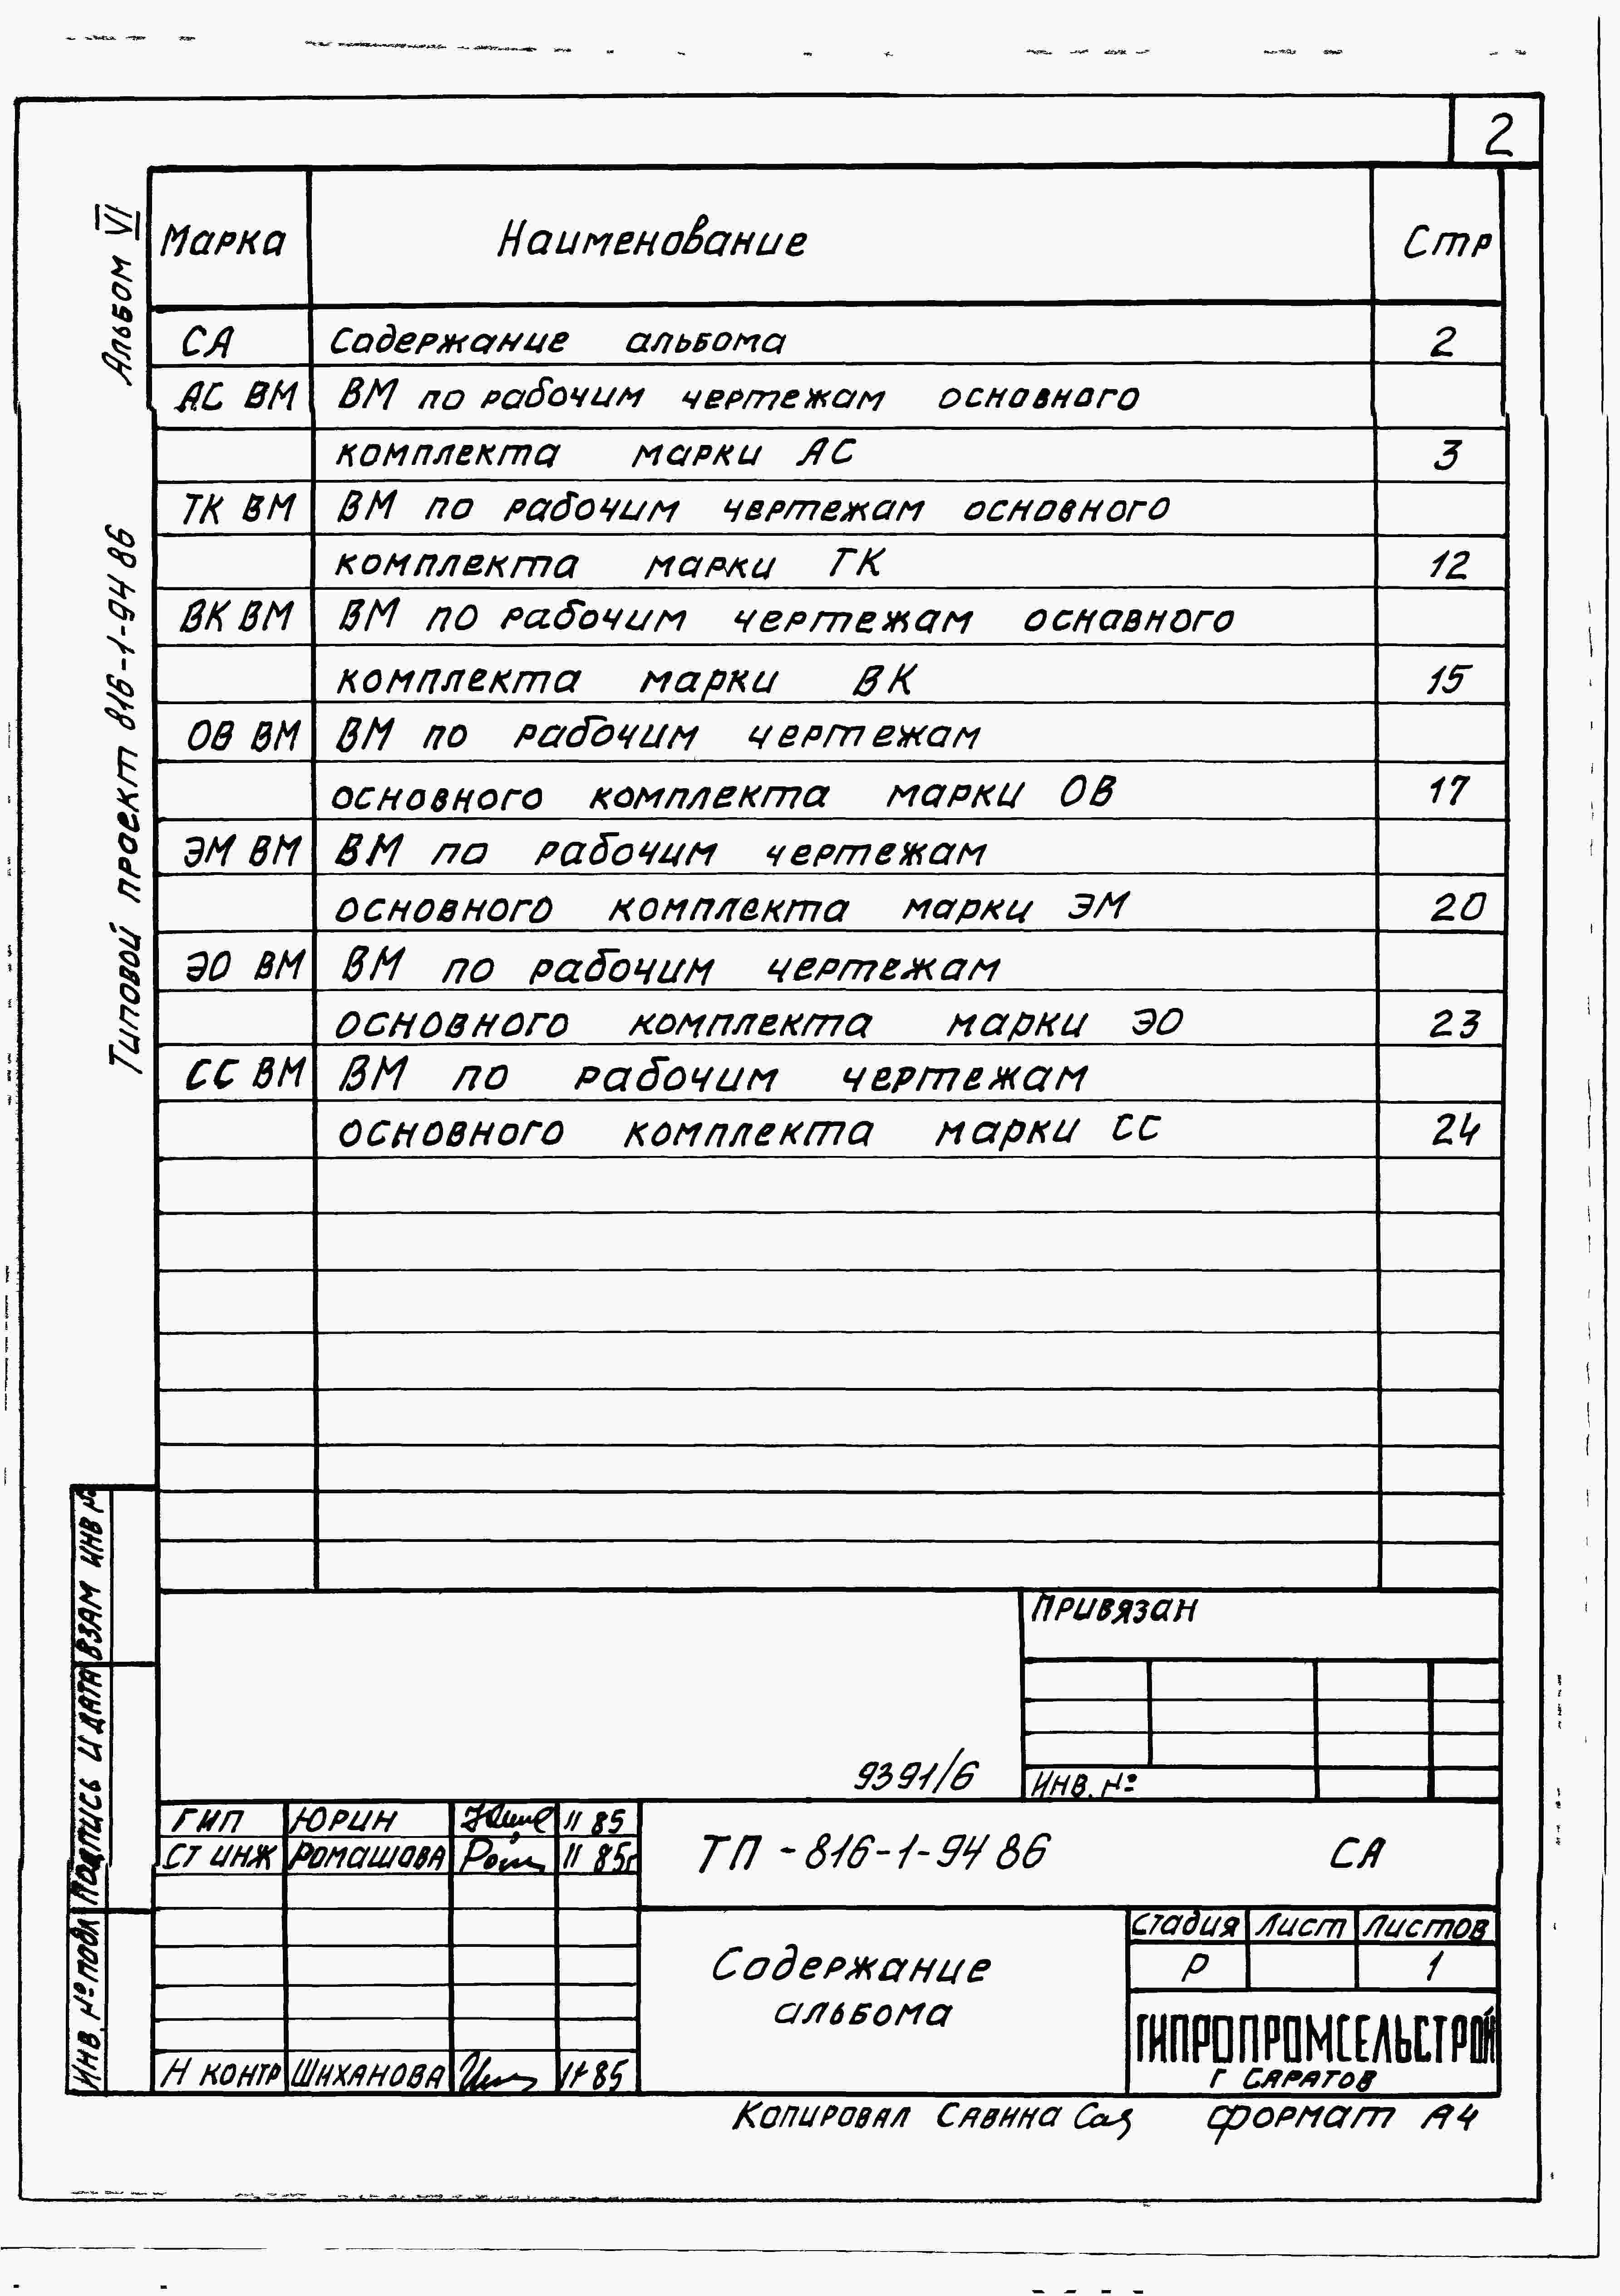 2
Альбом VI
Типовой проект 816-1-94 86
Марка Наименование Стр
СА Содержание альбома 2
АС ВМ ВМ по рабочим чертежам основного
комплекта марки АС 3
ТК ВМ ВМ по рабочим чертежам основного
комплекта марки ТК 12
ВК ВМ ВМ по рабочим чертежам основного
комплекта марки ВК 15
ОВ ВМ ВМ по рабочим чертежам
основного комплекта марки ОВ 17
ЭМ ВМ ВМ по рабочим чертежам
основного комплекта марки ЭМ 20
ЭО ВМ ВМ по рабочим чертежам
основного комплекта марки ЭО 23
СС ВМ ВМ по рабочим чертежам
основного комплекта марки СС 24
Взам инв №
Подпись и дата
Инв. № подл
Привязан
9391/6
Инв. №
ГИП Юрин 11 85
Ст инж Ромашова 11 85г
Н контр Шиханова 11 85
ТП -816-1-94 86 СА
Содержание
альбома
Стадия Лист Листов
Р 1
ГИПРОПРОМСЕЛЬСТРОЙ
г Саратов
Копировал Савина Формат А4